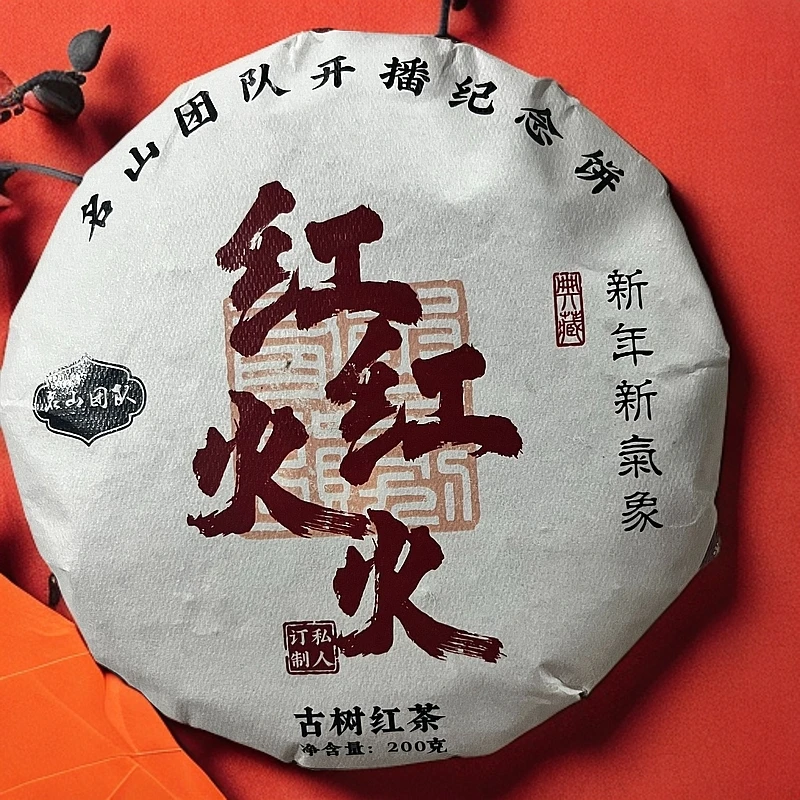 名山团队开播纪念饼
红红火火
典藏
新年新氣象
名山团队
私人订制
古树红茶
净含量：200克